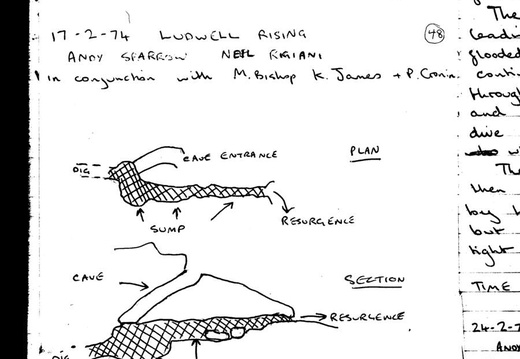 17-2-74 LUDWELL RISING
48
ANDY SPARROW NEIL
In conjunction with M. Bishop K. James + P. Cronin.
PLAN
CAVE ENTRANCE
DIG
RESURGENCE
SUMP
SECTION
CAVE
RESURGENCE
DIG
The
flooded
through
and
dive
The
then
but
tight
TIME
24-2-7
ANDY